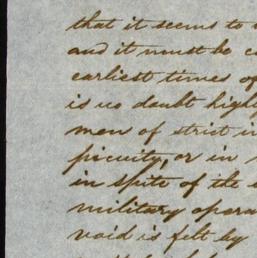 that it seems to
and it must be
earliest times of
is no doubt high
men of strict in
picuity, or in
in spite of the
military opera
void is felt by